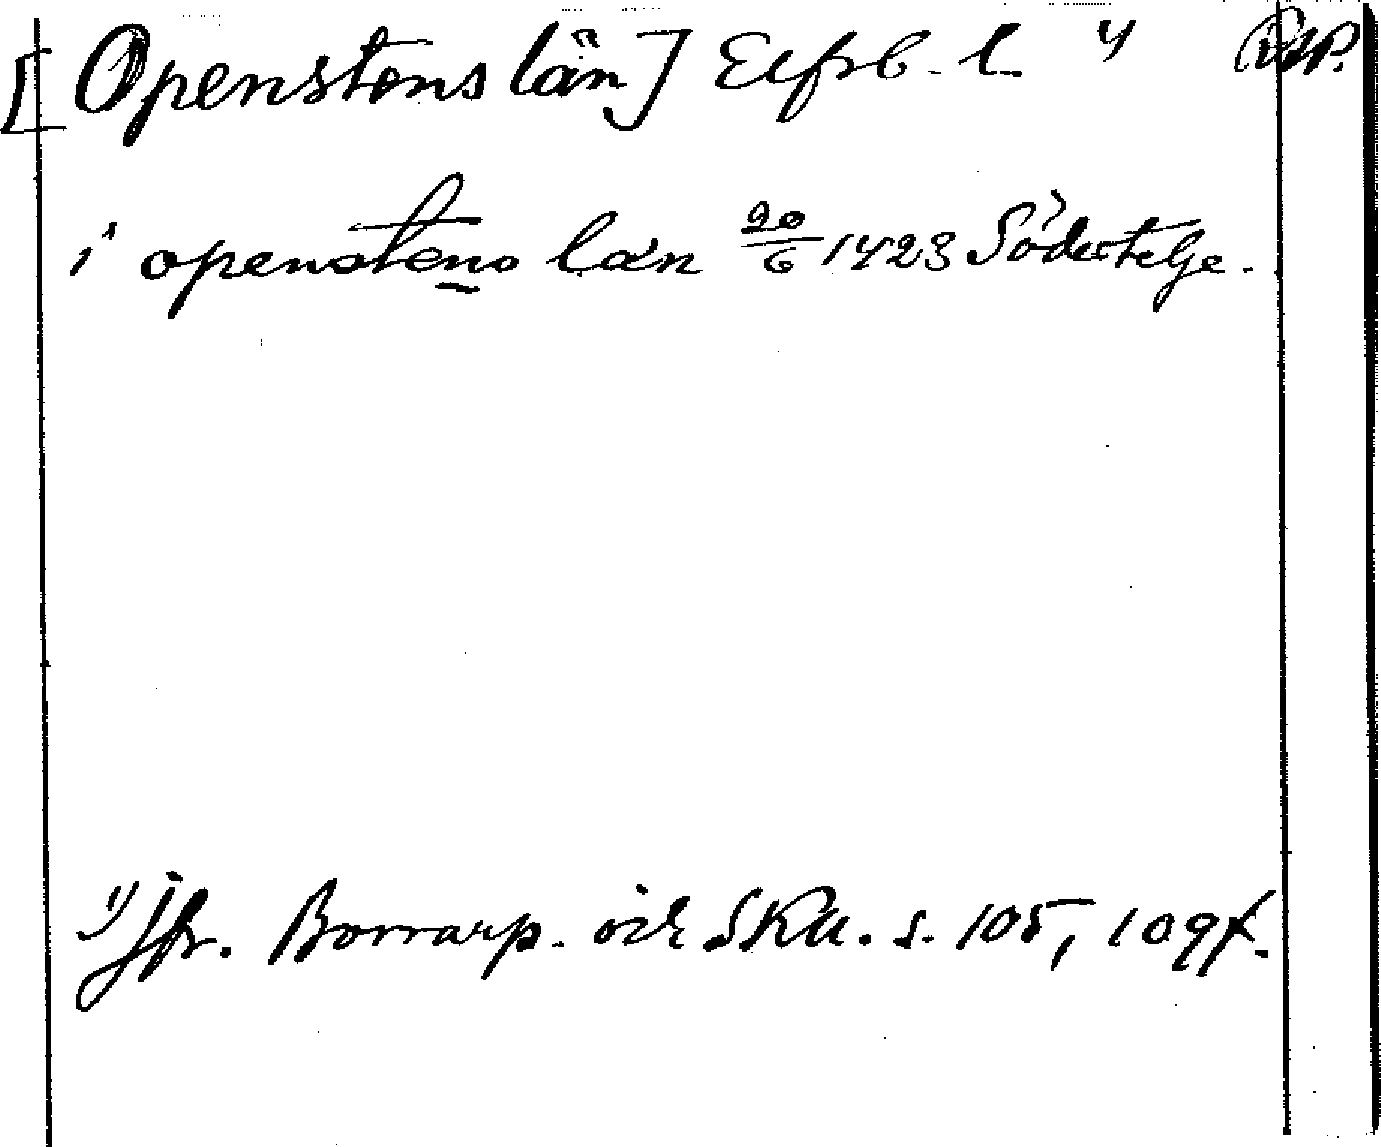 [Openstens län] Elfsb. l. 1)
i openstens læn 20/6 1423 Södertelge.
1) Jfr. Borrarp. och SKU. s. 105, 109 f.